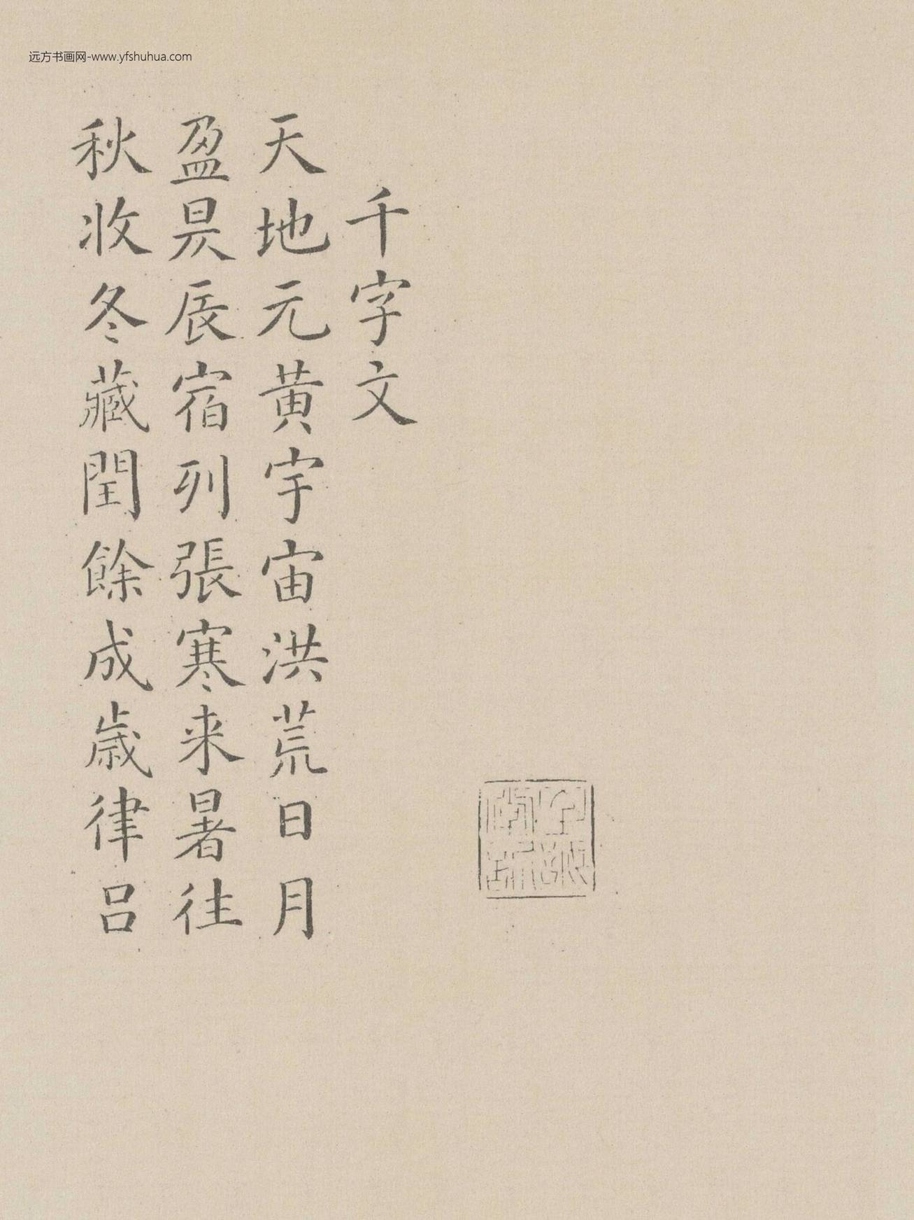 远方书画网-www.yfshuhua.com
千字文
天地元黄宇宙洪荒日月
盈昃辰宿列張寒来暑往
秋收冬藏閏餘成歳律呂